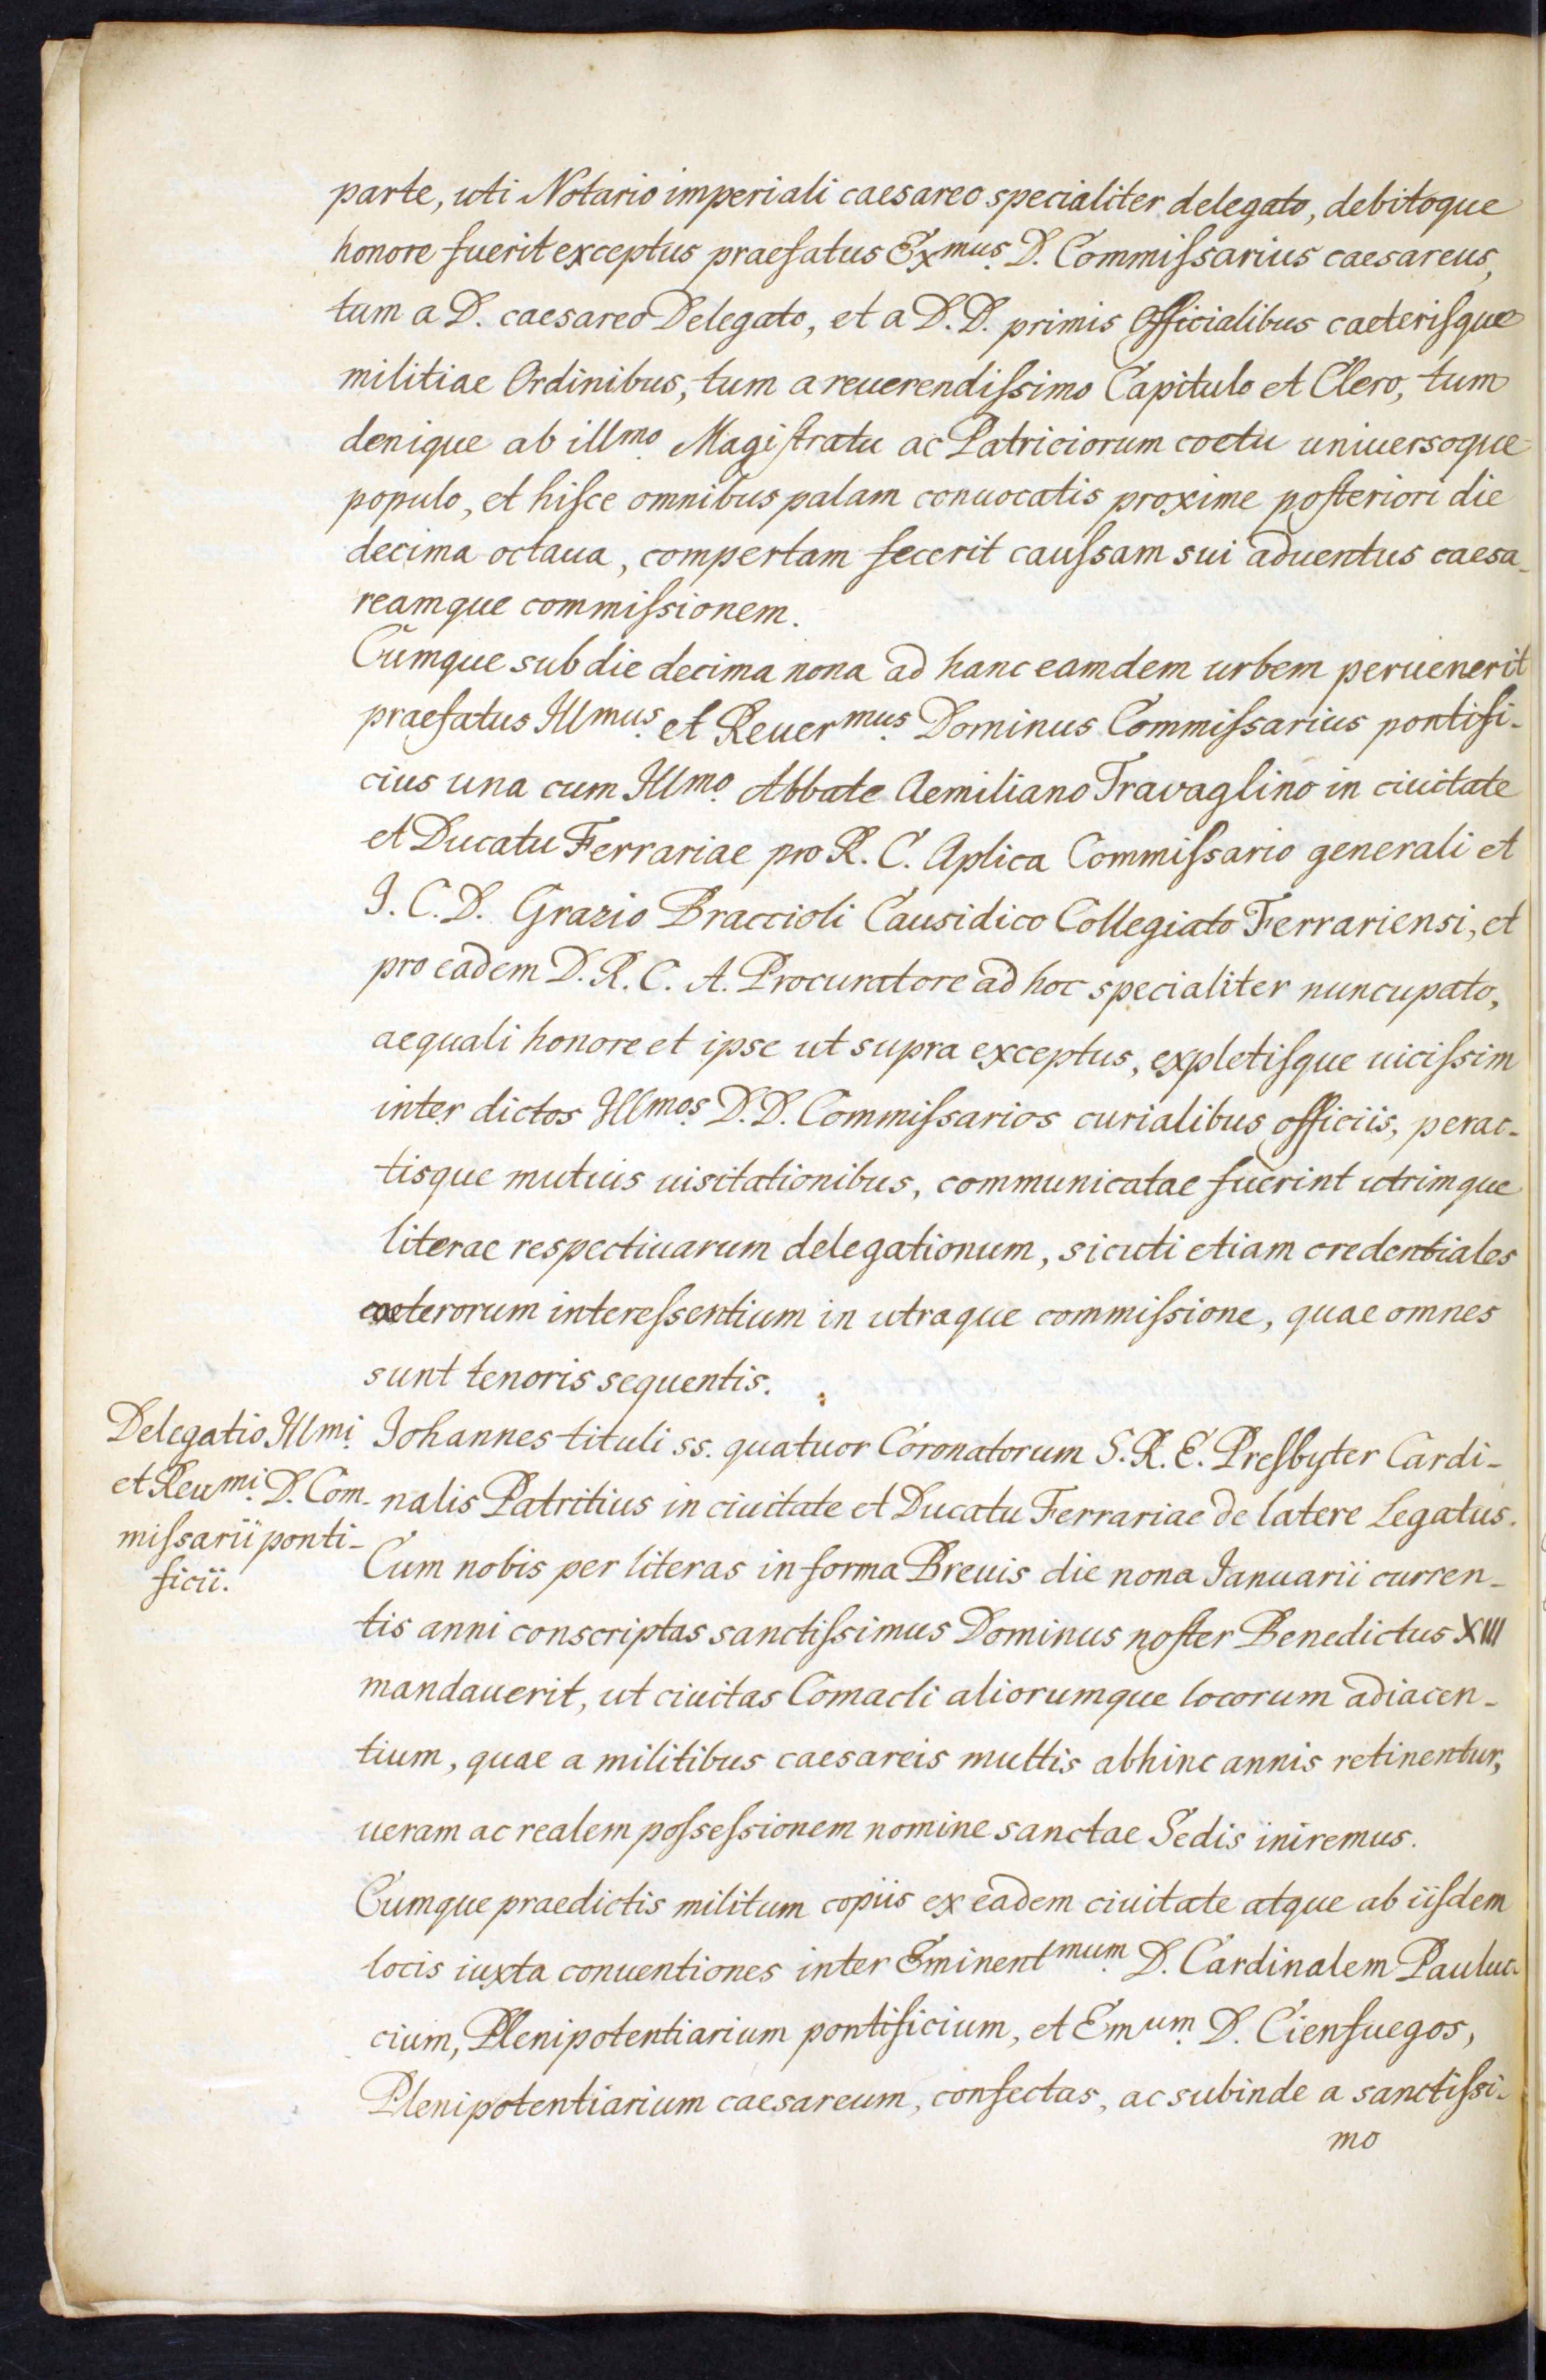 parte, uti Notario imperiali caesareo specialiter delegato, debitoque
honore fuerit exceptus praefatus Exmus. D. Commissarius caesareus,
tum a D. caesareo Delegato, et a D.D. primis Officialibus caeterisque
militiae Ordinibus, tum a reuerendissimo Capitulo et Clero, tum
denique ab illmo. Magistratu ac Patriciorum coetu uniuersoque
populo, et hisce omnibus palam conuocatis proxime posteriori die
decima octaua, compertam fecerit caussam sui aduentus caesa-
reamque commissionem.
Cumque sub die decima nona ad hanc eamdem urbem peruenerit
praefatus Illmus. et Reuermus. Dominus Commissarius pontifi-
cius una cum Illmo. Abbate Aemiliano Travaglino in ciuitate
et Ducatu Ferrariae pro R. C. Aplica Commissario generali et
J. C. D. Grazio Braccioli Causidico Collegiato Ferrariensi, et
pro eadem D. R. C. A. Procuratore ad hoc specialiter nuncupato,
aequali honore et ipse ut supra exceptus, expletisque uicissim
inter dictos Illmos. D.D. Commissarios curialibus officiis, perac-
tisque mutuis uisitationibus, communicatae fuerint utrimque
literae respectiuarum delegationum, sicuti etiam credentiales
caeterorum interessentium in utraque commissione, quae omnes
sunt tenoris sequentis.
Delegatio Illmi.
et Reumi. D. Com-
missarii ponti-
ficii.
Johannes tituli ss. quatuor Coronatorum S. R. E. Presbyter Cardi-
nalis Patritius in ciuitate et Ducatu Ferrariae de latere Legatus.
Cum nobis per literas in forma Breuis die nona Januarii curren-
tis anni conscriptas sanctissimus Dominus noster Benedictus XIII
mandauerit, ut ciuitas Comacli aliorumque locorum adiacen-
tium, quae a militibus caesareis multis abhinc annis retinentur,
ueram ac realem possessionem nomine sanctae Sedis iniremus.
Cumque praedictis militum copiis ex eadem ciuitate atque ab iisdem
locis iuxta conuentiones inter Eminentmum. D. Cardinalem Pauluc-
cium, Plenipotentiarium pontificium, et Emum. D. Cienfuegos,
Plenipotentiarium caesareum, confectas, ac subinde a sanctissi-
mo